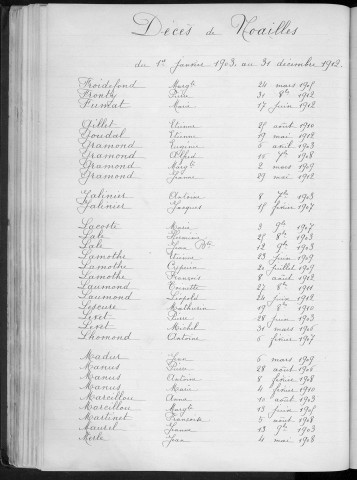 Décès de Noailles
du 1er Janvier 1903, au 31 décembre 1912.
Froidefond Margte 24 mars 1905
Fronty Pierre 31 8bre 1912
Fumat Marie 17 juin 1912
Gillet Etienne 25 août 1910
Goudal Etienne 19 mai 1912
Gramond Eugénie 6 avril 1903
Gramond Alfred 16 7bre 1908
Gramond Margte 2 mars 1909
Gramond Jeanne 29 mai 1912
Jalinier Antoine 8 7bre 1903
Jalinier Jacques 15 février 1907
Lacoste Marie 2 9bre 1907
Lale 25 8bre 1903
Lale Jean Bte 12 9bre 1903
Lamothe Etienne 13 juin 1909
Lamothe Cyprien 20 juillet 1909
Lamothe François 8 août 1912
Laumond Toinette 27 8bre 1911
Laumond Léopold 24 juin 1912
Lescure Mathurin 19 8bre 1910
Leyet Pierre 28 juin 1903
Leyet Michel 31 mars 1906
Lhomond Antoine 6 février 1907
Madur Jean 6 mars 1909
Manus Pierre 28 août 1906
Manus Antoine 8 février 1908
Manus Marie 4 février 1910
Marcillou Anna 10 août 1903
Marcillou Margte 13 juin 1905
Martinet Françoise 5 août 1908
Maurel Jeanne 13 9bre 1903
Merle Jean 4 mai 1908